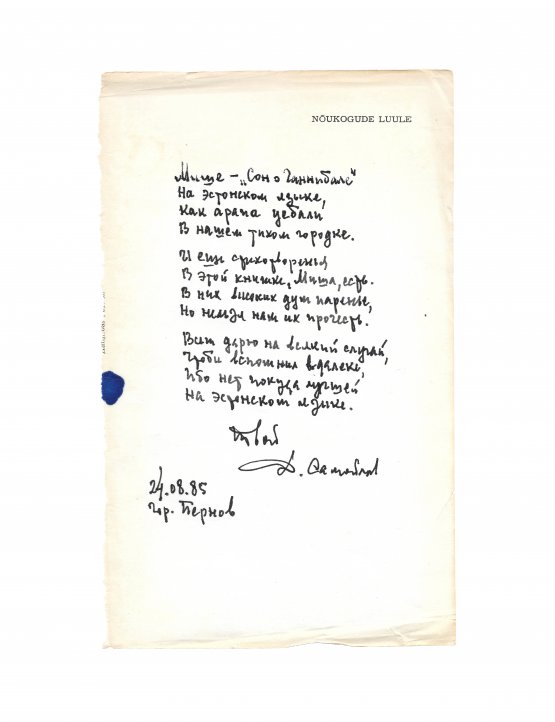 NÕUKOGUDE LUULE
Мише – „Сон о Ганнибале"
На эстонском языке,
Как арапа уебали
В нашем тихом городке.
И еще стихотворенья
В этой книжке, Миша, есть.
В них высоких дум паренье,
Но нельзя нам их прочесть.
Вот дарю на всякий случай,
Чтобы вспомнил вдалеке,
Ибо нет покуда лучшей
На эстонском языке.
Твой
Д. Самойлов
24.08.85
гор. Пернов